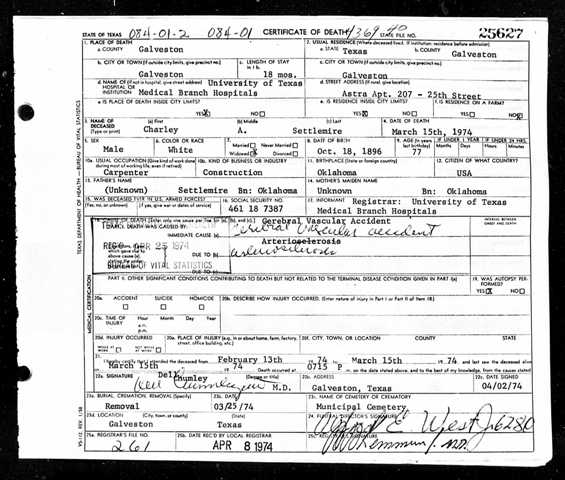 STATE OF TEXAS 084-01-2 084-01 CERTIFICATE OF DEATH STATE FILE NO. 25627
1. PLACE OF DEATH
a. COUNTY Galveston
2. USUAL RESIDENCE (Where deceased lived. If institution: residence before admission)
a. STATE Texas b. COUNTY Galveston
b. CITY OR TOWN (If outside city limits, give precinct no.) Galveston
c. LENGTH OF STAY in 1 b. 18 mos.
c. CITY OR TOWN (If outside city limits, give precinct no.) Galveston
d. NAME OF (If not in hospital, give street address) HOSPITAL OR INSTITUTION University of Texas
Medical Branch Hospitals
d. STREET ADDRESS (If rural, give location)
Astra Apt. 207 - 25th Street
e. IS PLACE OF DEATH INSIDE CITY LIMITS? YES X NO
e. IS RESIDENCE INSIDE CITY LIMITS? YES X NO
f. IS RESIDENCE ON A FARM? YES NO X
3. NAME OF DECEASED (Type or print) (a) First Charley (b) Middle A. (c) Last Settlemire
4. DATE OF DEATH March 15th, 1974
5. SEX Male
6. COLOR OR RACE White
7. Married Never Married Widowed Divorced
8. DATE OF BIRTH Oct. 18, 1896
9. AGE 77
IF UNDER 1 YEAR Months Days
IF UNDER 24 HRS. Hours Min.
10a. USUAL OCCUPATION (Give kind of work done during most of working life, even if retired) Carpenter
10b. KIND OF BUSINESS OR INDUSTRY Construction
11. BIRTHPLACE (State or foreign country) Oklahoma
12. CITIZEN OF WHAT COUNTRY? USA
13. FATHER'S NAME
(Unknown) Settlemire Bn: Oklahoma
14. MOTHER'S MAIDEN NAME
Unknown Bn: Oklahoma
15. WAS DECEASED EVER IN U.S. ARMED FORCES?
16. SOCIAL SECURITY NO. 461 18 7387
17. INFORMANT Registrar: University of Texas
Medical Branch Hospitals
Cerebral Vascular Accident
IMMEDIATE CAUSE (a) Cerebral Vascular accident
REC'D APR 25 1974
DUE TO (b) Arteriosclerosis
arteriosclerosis
BUREAU OF VITAL STATISTICS
DUE TO (c)
PART II. OTHER SIGNIFICANT CONDITIONS CONTRIBUTING TO DEATH BUT NOT RELATED TO THE TERMINAL DISEASE CONDITION GIVEN IN PART I(a)
19. WAS AUTOPSY PERFORMED? YES NO
20a. ACCIDENT SUICIDE HOMICIDE
20b. DESCRIBE HOW INJURY OCCURRED. (Enter nature of injury in Part I or Part II of item 18)
20c. TIME OF INJURY Hour Month Day Year
a.m.
p.m.
20d. INJURY OCCURRED
20e. PLACE OF INJURY (e.g. in or about home, farm, factory, street, office building, etc.)
20f. CITY, TOWN, OR LOCATION COUNTY STATE
21. I hereby certify that I attended the deceased from February 13th 74 to March 15th 74 and last saw the deceased alive
on March 15th 74 Death occurred at 0715 P m. on the date stated above, and to the best of my knowledge, from the causes stated.
22a. SIGNATURE (Degree or title) M.D.
22b. ADDRESS Galveston, Texas
22c. DATE SIGNED 04/02/74
23a. BURIAL, CREMATION, REMOVAL (Specify) Removal
23b. DATE 03/25/74
23c. NAME OF CEMETERY OR CREMATORY Municipal Cemetery
23d. LOCATION (City, town, or county) (State)
Galveston Texas
24. FUNERAL DIRECTOR'S SIGNATURE
25a. REGISTRAR'S FILE NO. 261
25b. DATE REC'D BY LOCAL REGISTRAR APR 8 1974
TEXAS DEPARTMENT OF HEALTH — BUREAU OF VITAL STATISTICS
MEDICAL CERTIFICATION